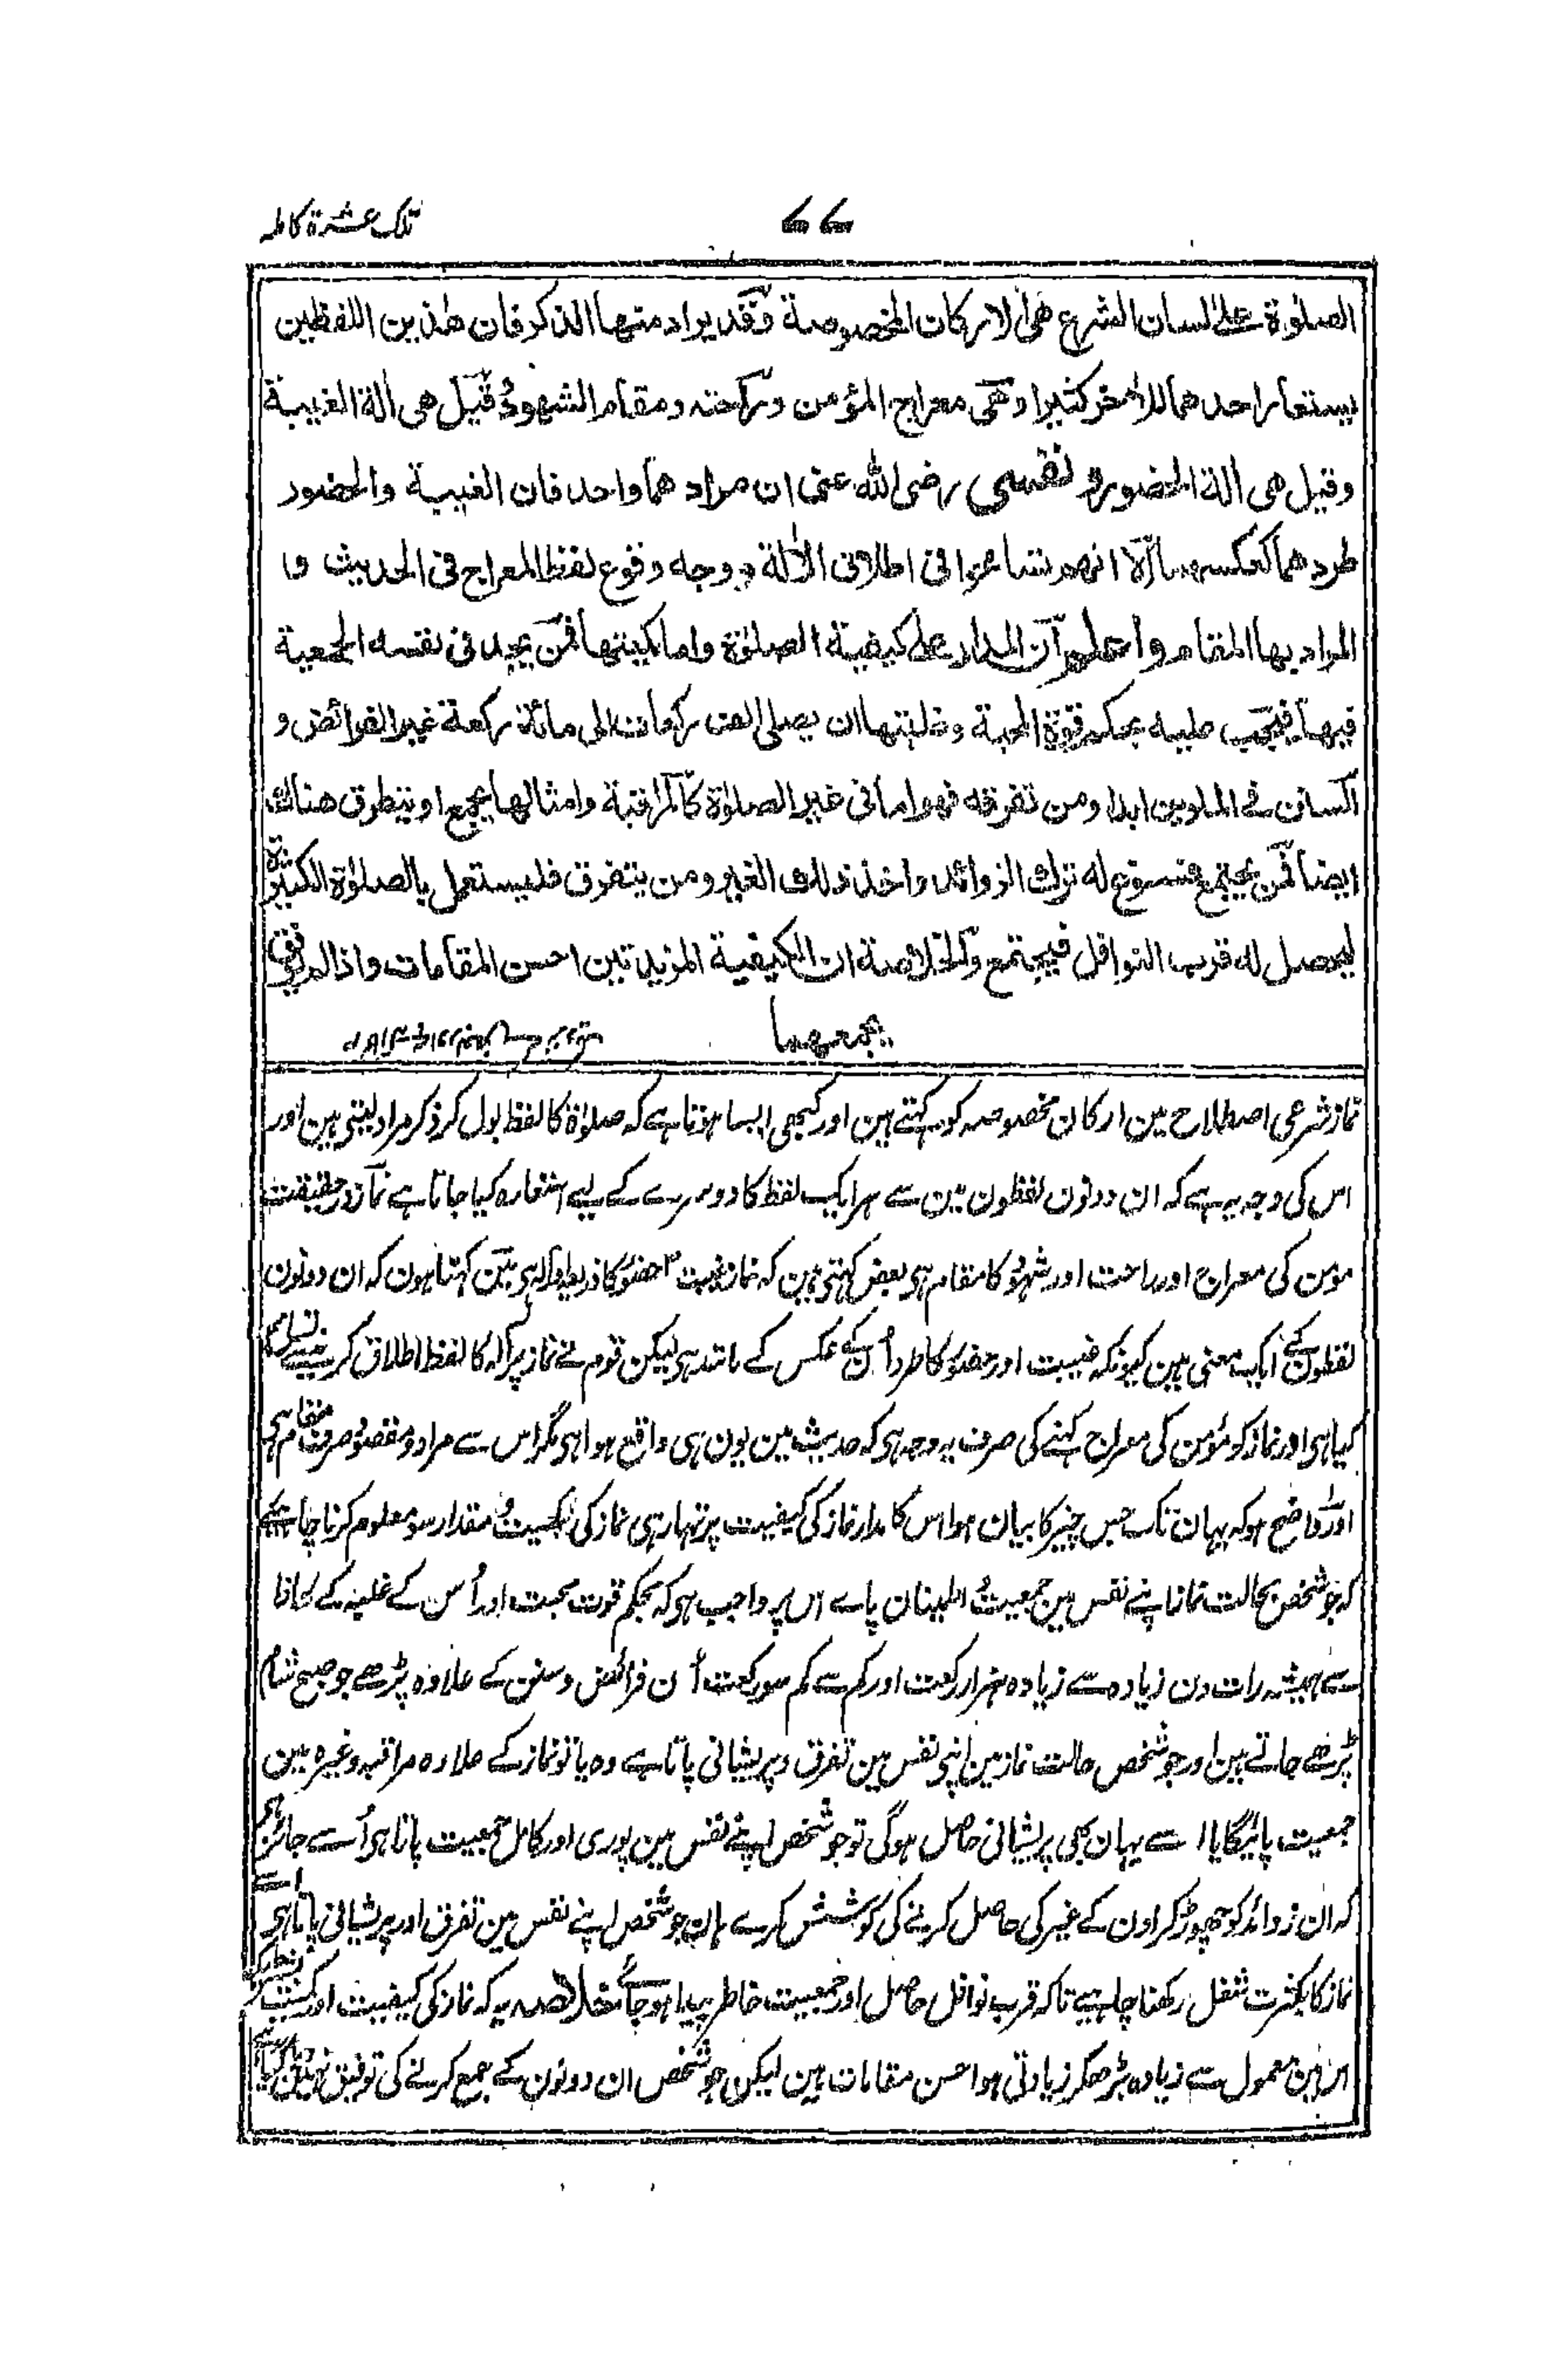 تلک عشرة کاملہ
۷۷
الصلوٰة علی لسان الشرع هی الارکان المخصوصة وقد یراد منها الذکر فان هٰذین اللفظین
یستعار احدهما للاٰخر کثیرا وهی معراج المؤمن وراحته ومقام الشهود قیل هی اٰلة الغیبیة
وقیل هی اٰلة الحضور و نفسی رضی اللّٰه عنی ان مرادهما واحد فان الغیبیة والحضور
طردهما کعکسهما الا انهم تسامحوا فی اطلاق الاٰلة ووجه وقوع لفظ المعراج فی الحدیث و
المراد بها المقام واعلم ان المدار علی کیفیة الصلوٰة واما کمیتها فمن یجد فی نفسه الجمعیة
فیها فیجب علیه بحکم قوة المحبة وغلبتها ان یصلی الف رکعات الی مائة رکعة غیر الفرائض و
السنن فی الملوین ابدا ومن تفرقه فهو اما فی غیر الصلوٰة کالمراقبة وامثالها یجمع او یتطرق هناک
ایضا فمن یجتمع فتسوغ له ترک الزوائد واخذ ذلک الغیر ومن یتفرق فلیستعمل بالصلوٰة الکثیرة
لیحصل له قرب النوافل فیجتمع والخلاصة ان الکیفیة المزیدتین احسن المقامات واذا لم یوفق
بجمعهما
نماز شرعی اصطلاح مین ارکان مخصوصہ کو کہتے ہین اور کبھی ایسا ہوتا ہے کہ صلوٰة کا لفظ بول کر ذکر مراد لیتی ہین اور
اس کی وجہ یہ ہے کہ ان دونون لفظون مین سے ہر ایک لفظ کا دوسرے کے لیے استعارہ کیا جاتا ہے نماز در حقیقت
مومن کی معراج اور راحت اور شہود کا مقام ہی بعض کہتی ہین کہ نماز غیبت حضور کا ذریعہ و آلہ ہی مین کہتا ہون کہ ان دونون
لفظون کے ایک معنی ہین کیونکہ غیبت اور حضور کا طرد اُن کے عکس کے مانند ہی لیکن قوم نے نماز پر آلہ کا لفظ اطلاق کرنے مین تسامح
کیا ہی اور نماز کو مؤمن کی معراج کہنے کی صرف یہ وجہ ہی کہ حدیث مین یون ہی واقع ہوا ہی مگر اس سے مراد و مقصود صرف مقام ہی
اور واضح ہو کہ یہان تک جس چیز کا بیان ہوا اس کا مدار نماز کی کیفیت پر تہا رہی نماز کی کمیت و مقدار سو معلوم کرنا چاہیے
کہ جو شخص بحالت نماز اپنے نفس مین جمعیت و اطمینان پاے اس پر واجب ہو کہ بحکم قوت محبت اور اُس کے غلبہ کے لحاظ
سے ہمیشہ رات دن زیادہ سے زیادہ ہزار رکعت اور کم سے کم سو رکعت اُن فرائض و سنن کے علاوہ پڑھے جو صبح شام
پڑھے جاتے ہین اور جو شخص حالت نماز مین اپنی نفس مین تفرق و پریشانی پاتا ہے وہ یا تو نماز کے علاوہ مراقبہ وغیرہ مین
جمعیت پائیگا یا اسے یہان بھی پریشانی حاصل ہوگی تو جو شخص اپنے نفس مین پوری اور کامل جمعیت پاتا ہی اُسے جائز ہی
کہ ان زوائد کو چھوڑ کر اون کے غیر کی حاصل کرنے کی کوشش کرے ہان جو شخص اپنے نفس مین تفرق اور پریشانی پاتا ہی اسے
نماز کا بکثرت شغل رکھنا چاہیے تاکہ قرب نوافل حاصل اور جمعیت خاطر پیدا ہو جائے خلاصہ یہ کہ نماز کی کیفیت اور کمیت
مین معمول سے زیادہ بڑھکر زیادتی ہو احسن مقامات ہین لیکن جو شخص ان دونون کے جمع کرنے کی توفیق نہین